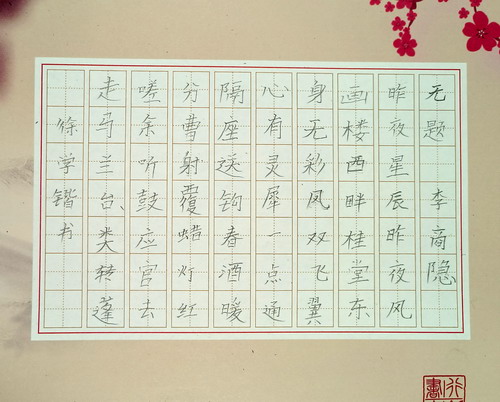 无题 李商隐
昨夜星辰昨夜风
画楼西畔桂堂东
身无彩凤双飞翼
心有灵犀一点通
隔座送钩春酒暖
分曹射覆蜡灯红
嗟余听鼓应官去
走马兰台、类转蓬
徐学锴书